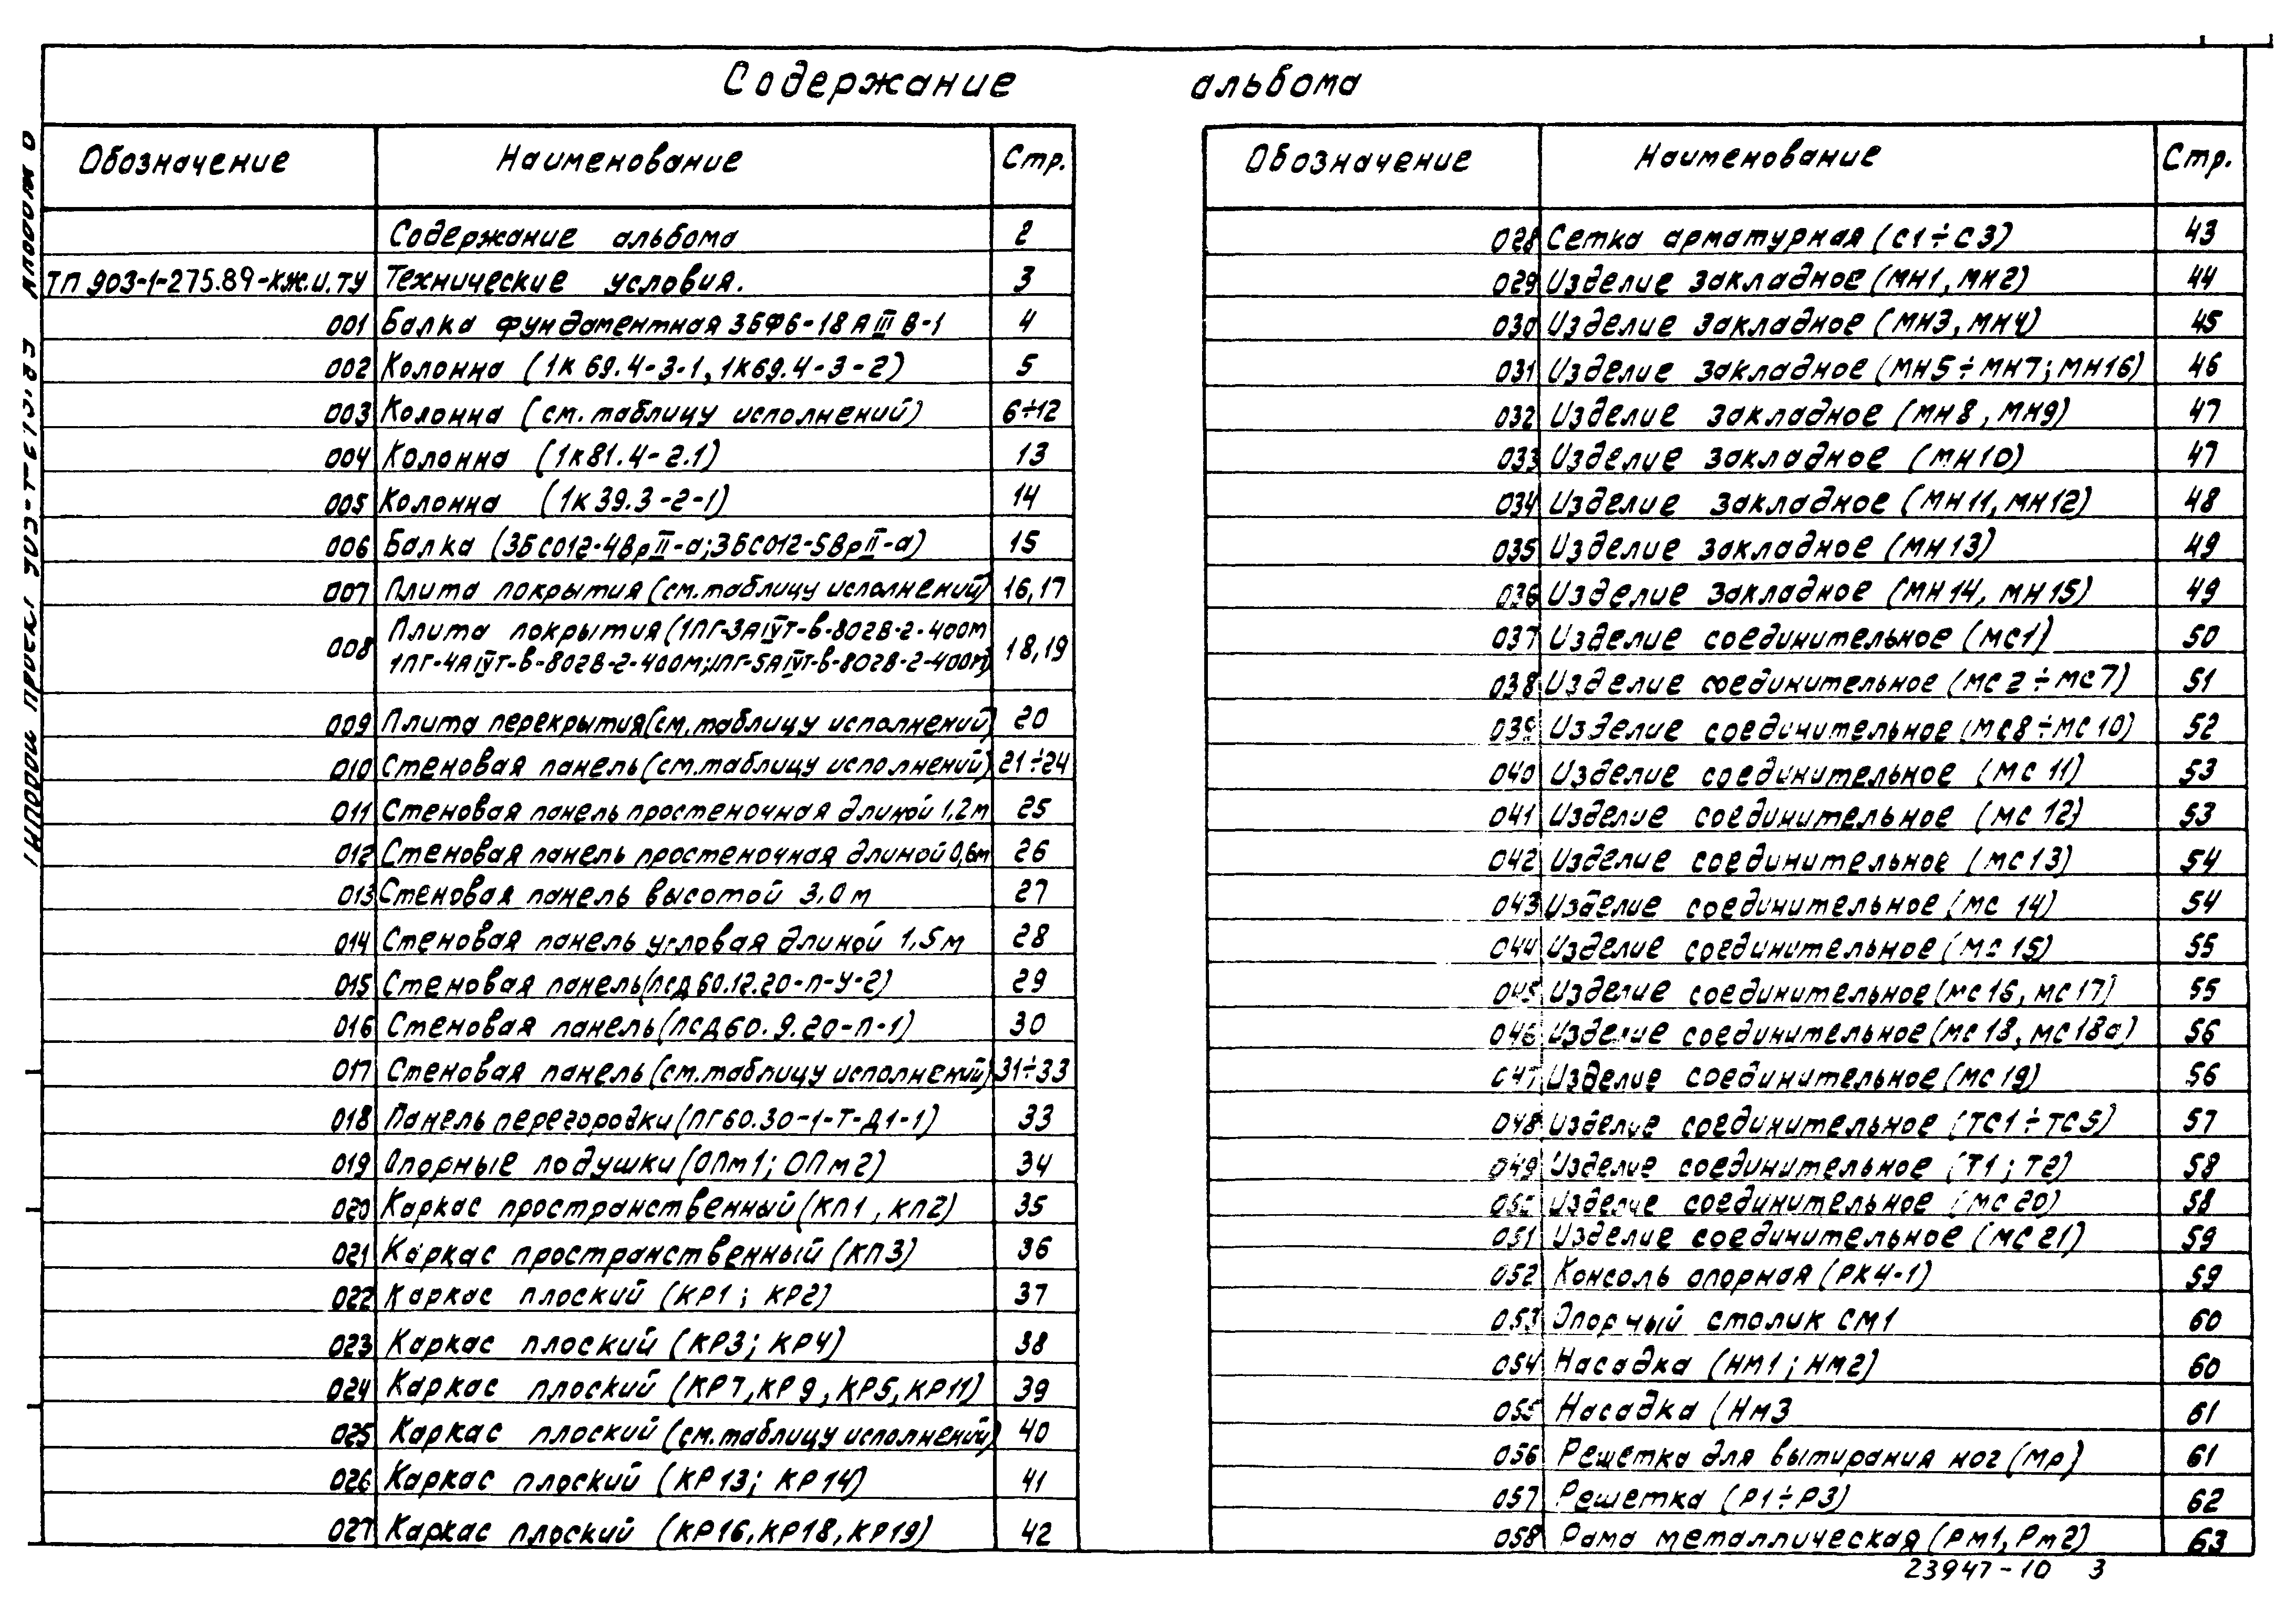 Содержание альбома
Обозначение Наименование Стр.
Содержание альбома 2
ТП 903-1-275.89-КЖ.И.ТУ Технические условия. 3
001 Балка фундаментная 3БФ6-18АIIIВ-1 4
002 Колонна (1К69.4-3-1, 1К69.4-3-2) 5
003 Колонна (см. таблицу исполнений) 6÷12
004 Колонна (1К81.4-2.1) 13
005 Колонна (1К39.3-2-1) 14
006 Балка (3БСО12-4ВрII-а; 3БСО12-5ВрII-а) 15
007 Плита покрытия (см. таблицу исполнений) 16,17
008 Плита покрытия (1ПГ-3АIVТ-В-802В-2-400м 18,19
1ПГ-4АIVТ-В-802В-2-400м; 1ПГ-5АIVТ-В-802В-2-400м)
009 Плита перекрытия (см. таблицу исполнений) 20
010 Стеновая панель (см. таблицу исполнений) 21÷24
011 Стеновая панель простеночная длиной 1,2м 25
012 Стеновая панель простеночная длиной 0,6м 26
013 Стеновая панель высотой 3,0м 27
014 Стеновая панель угловая длиной 1,5м 28
015 Стеновая панель (ПСД60.12.20-П-У-2) 29
016 Стеновая панель (ПСД60.9.20-П-1) 30
017 Стеновая панель (см. таблицу исполнений) 31÷33
018 Панель перегородки (ПГ60.30-1-Т-Д1-1) 33
019 Опорные подушки (ОПм1; ОПм2) 34
020 Каркас пространственный (КП1, КП2) 35
021 Каркас пространственный (КП3) 36
022 Каркас плоский (КР1; КР2) 37
023 Каркас плоский (КР3; КР4) 38
024 Каркас плоский (КР7, КР9, КР5, КР11) 39
025 Каркас плоский (см. таблицу исполнений) 40
026 Каркас плоский (КР13; КР14) 41
027 Каркас плоский (КР16, КР18, КР19) 42
Обозначение Наименование Стр.
028 Сетка арматурная (С1÷С3) 43
029 Изделие закладное (МН1, МН2) 44
030 Изделие закладное (МН3, МН4) 45
031 Изделие закладное (МН5÷МН7; МН16) 46
032 Изделие закладное (МН8, МН9) 47
033 Изделие закладное (МН10) 47
034 Изделие закладное (МН11, МН12) 48
035 Изделие закладное (МН13) 49
036 Изделие закладное (МН14, МН15) 49
037 Изделие соединительное (МС1) 50
038 Изделие соединительное (МС2÷МС7) 51
039 Изделие соединительное (МС8÷МС10) 52
040 Изделие соединительное (МС11) 53
041 Изделие соединительное (МС12) 53
042 Изделие соединительное (МС13) 54
043 Изделие соединительное (МС14) 54
044 Изделие соединительное (МС15) 55
045 Изделие соединительное (МС16, МС17) 55
046 Изделие соединительное (МС18, МС18а) 56
047 Изделие соединительное (МС19) 56
048 Изделие соединительное (ТС1÷ТС5) 57
049 Изделие соединительное (Т1; Т2) 58
050 Изделие соединительное (МС20) 58
051 Изделие соединительное (МС21) 59
052 Консоль опорная (РК4-1) 59
053 Опорный столик СМ1 60
054 Насадка (НМ1; НМ2) 60
055 Насадка (НМ3 61
056 Решетка для вытирания ног (Мр) 61
057 Решетка (Р1÷Р3) 62
058 Рама металлическая (Рм1, Рм2) 63
23947-10 3